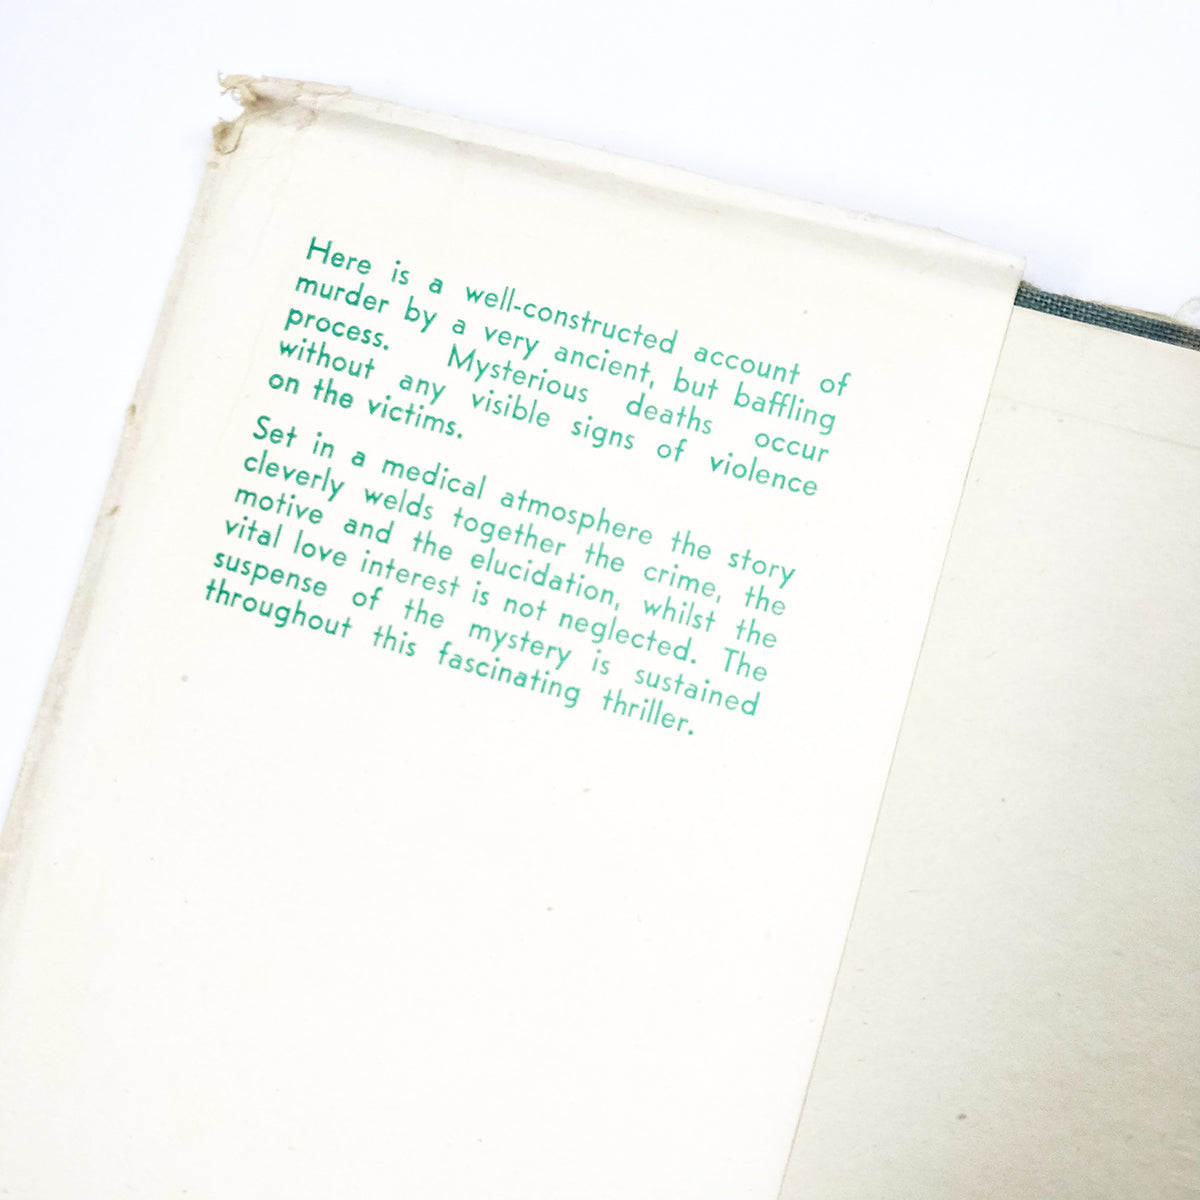 Here is a well-constructed account of
murder by a very ancient, but baffling
process. Mysterious deaths occur
without any visible signs of violence
on the victims.
Set in a medical atmosphere the story
cleverly welds together the crime, the
motive and the elucidation, whilst the
vital love interest is not neglected. The
suspense of the mystery is sustained
throughout this fascinating thriller.